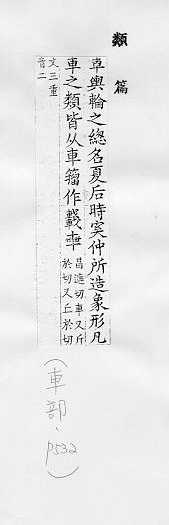 類篇
車輿輪之緫名夏后時奚仲所造象形凡
車之類皆从車籀作
昌遮切車又斤
於切又丘於切
文三重
音二
(車部、
p532)